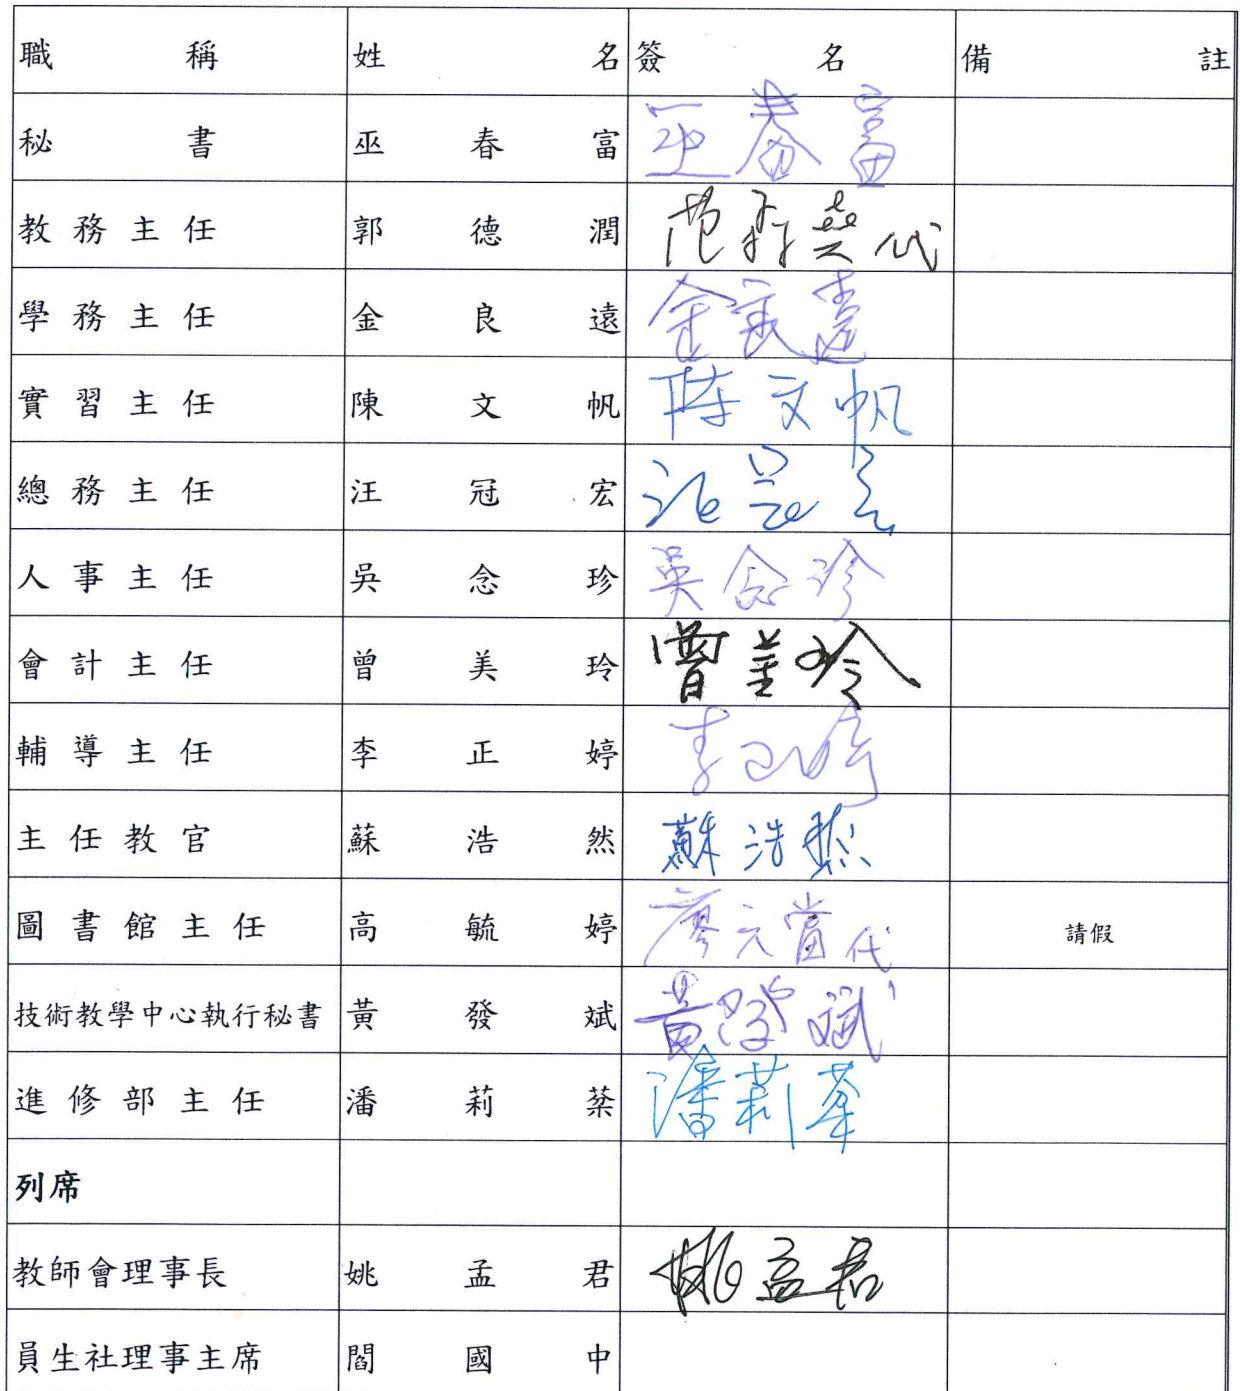 職稱 姓名 簽名 備註
秘書 巫春富 巫春富
教務主任 郭德潤 代
學務主任 金良遠 金良遠
實習主任 陳文帆 陳文帆
總務主任 汪冠宏 汪冠宏
人事主任 吳念珍 吳念珍
會計主任 曾美玲 曾美玲
輔導主任 李正婷 李正婷
主任教官 蘇浩然 蘇浩然
圖書館主任 高毓婷 廖元當代 請假
技術教學中心執行秘書 黃發斌 黃發斌
進修部主任 潘莉棻 潘莉棻
列席
教師會理事長 姚孟君 姚孟君
員生社理事主席 閻國中